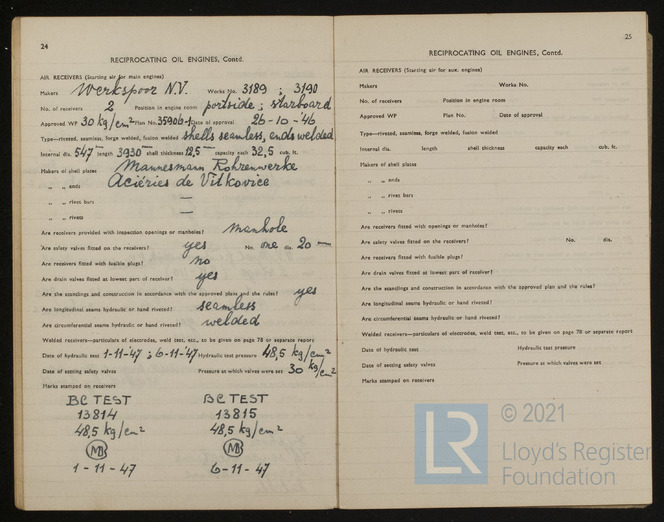 24
RECIPROCATING OIL ENGINES, Contd.
AIR RECEIVERS (Starting air for main engines)
Makers Werkspoor N.V. Works No. 3189 ; 3190
No. of receivers 2 Position in engine room portside ; starboard
Approved WP 30 kg/cm² Plan No. 35906-1 Date of approval 26-10-'46
Type—riveted, seamless, forge welded, fusion welded shells seamless, ends welded
Internal dia. 547 — length 3930 — shell thickness 12,5 — capacity each 32,5 cub. ft.
Makers of shell plates Mannesmann Rohrenwerke
„ „ ends Aciéries de Vitkovice
„ „ rivet bars —
„ „ rivets —
Are receivers provided with inspection openings or manholes? Manhole
Are safety valves fitted on the receivers? yes No. one dia. 20 —
Are receivers fitted with fusible plugs? no
Are drain valves fitted at lowest part of receiver? yes
Are the scantlings and construction in accordance with the approved plan and the rules? yes
Are longitudinal seams hydraulic or hand riveted? seamless
Are circumferential seams hydraulic or hand riveted? welded
Welded receivers—particulars of electrodes, weld test, etc., to be given on page 78 or separate report
Date of hydraulic test 1-11-'47 ; 6-11-'47 Hydraulic test pressure 48,5 kg/cm²
Date of setting safety valves Pressure at which valves were set 30 kg/cm²
Marks stamped on receivers
BC TEST BC TEST
13814 13815
48,5 kg/cm² 48,5 kg/cm²
1-11-47 6-11-47
25
RECIPROCATING OIL ENGINES, Contd.
AIR RECEIVERS (Starting air for aux. engines)
Makers Works No.
No. of receivers Position in engine room
Approved WP Plan No. Date of approval
Type—riveted, seamless, forge welded, fusion welded
Internal dia. length shell thickness capacity each cub. ft.
Makers of shell plates
„ „ ends
„ „ rivet bars
„ „ rivets
Are receivers fitted with inspection openings or manholes?
Are safety valves fitted on the receivers? No. dia.
Are receivers fitted with fusible plugs?
Are drain valves fitted at lowest part of receiver?
Are the scantlings and construction in accordance with the approved plan and the rules?
Are longitudinal seams hydraulic or hand riveted?
Are circumferential seams hydraulic or hand riveted?
Welded receivers—particulars of electrodes, weld test, etc., to be given on page 78 or separate report
Date of hydraulic test Hydraulic test pressure
Date of setting safety valves Pressure at which valves were set
Marks stamped on receivers
LR © 2021
Lloyd's Register
Foundation